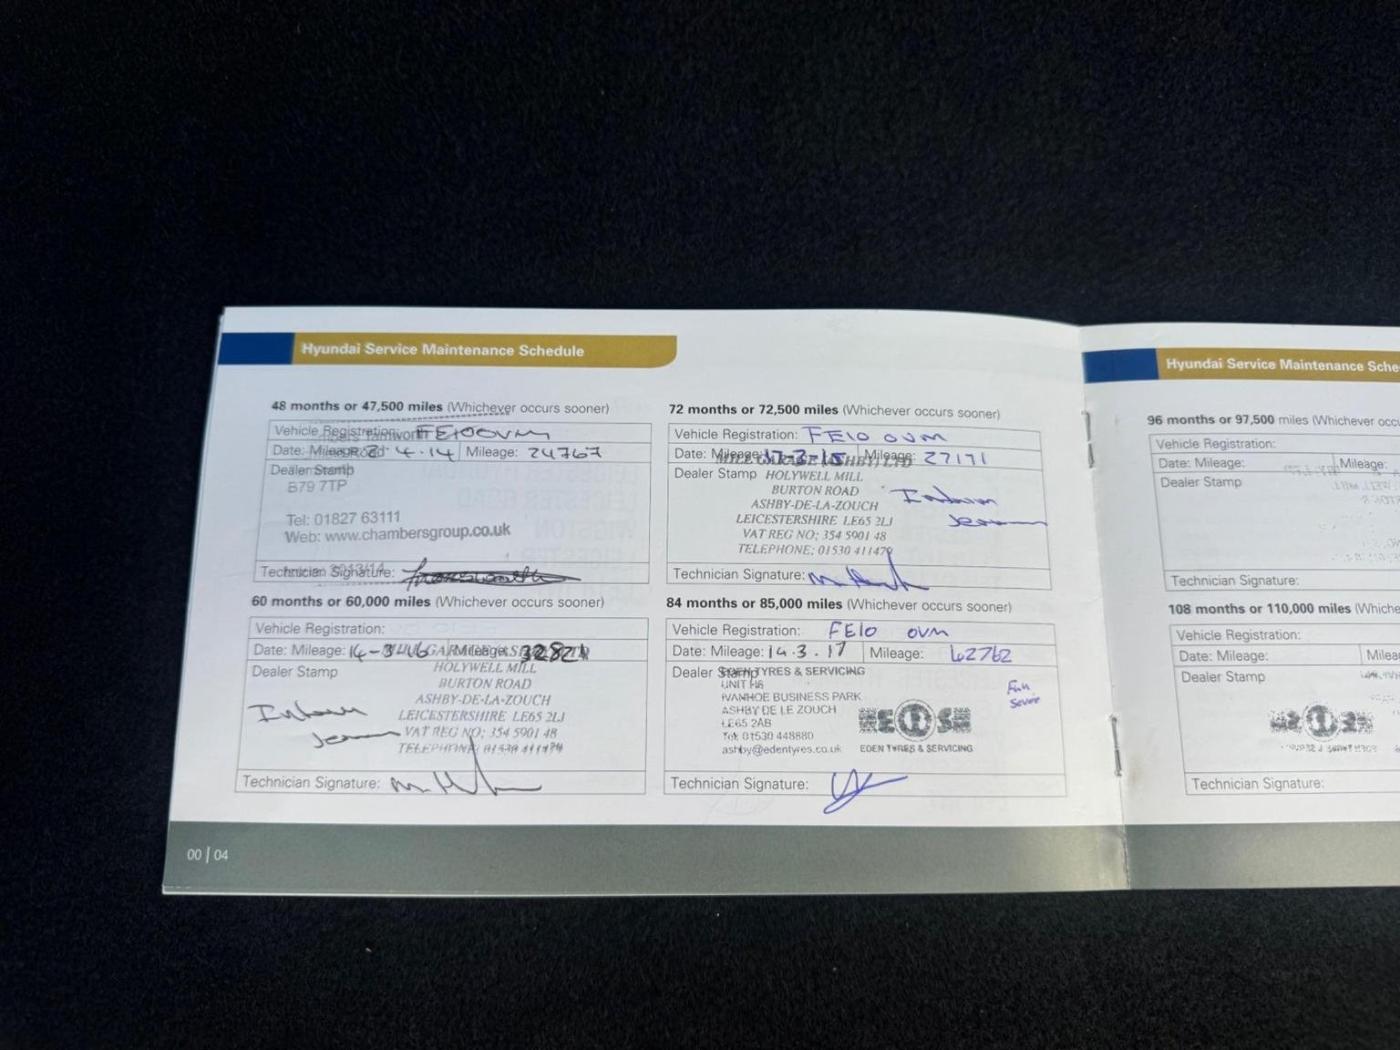 Hyundai Service Maintenance Schedule
48 months or 47,500 miles (Whichever occurs sooner)
Vehicle Registration: FE10OVM
Date: Mileage: 4.14 Mileage: 24767
Dealer Stamp
B79 7TP
Tel: 01827 63111
Web: www.chambersgroup.co.uk
Technician Signature:
60 months or 60,000 miles (Whichever occurs sooner)
Vehicle Registration:
Date: Mileage: 14-3-16 Mileage: 32821
Dealer Stamp
HOLYWELL MILL
BURTON ROAD
ASHBY-DE-LA-ZOUCH
LEICESTERSHIRE LE65 2LJ
VAT REG NO; 354 5901 48
TELEPHONE; 01530 411479
Technician Signature:
72 months or 72,500 miles (Whichever occurs sooner)
Vehicle Registration: FE10 OVM
Date: Mileage: 17-3-15 Mileage: 27171
MILL GARAGE (ASHBY) LTD
Dealer Stamp HOLYWELL MILL
BURTON ROAD
ASHBY-DE-LA-ZOUCH
LEICESTERSHIRE LE65 2LJ
VAT REG NO; 354 5901 48
TELEPHONE; 01530 411479
Technician Signature:
84 months or 85,000 miles (Whichever occurs sooner)
Vehicle Registration: FE10 OVM
Date: Mileage: 14.3.17 Mileage: 42762
Dealer Stamp
EDEN TYRES & SERVICING
UNIT H6
IVANHOE BUSINESS PARK
ASHBY DE LE ZOUCH
LE65 2AB
Tel: 01530 448880
ashby@edentyres.co.uk
EDEN TYRES & SERVICING
Full
Service
Technician Signature:
00 | 04
Hyundai Service Maintenance Sche
96 months or 97,500 miles (Whichever occu
Vehicle Registration:
Date: Mileage: Mileage:
Dealer Stamp
Technician Signature:
108 months or 110,000 miles (Whiche
Vehicle Registration:
Date: Mileage: Milea
Dealer Stamp
Technician Signature: